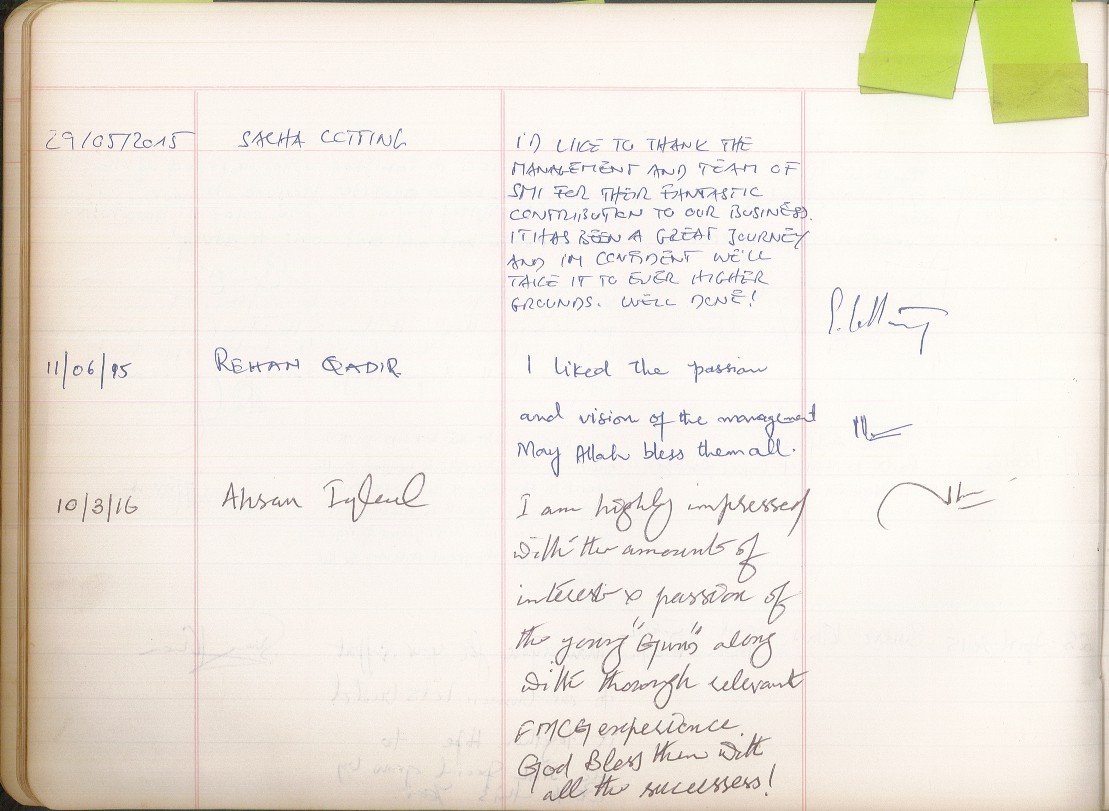 29/05/2015 SACHA COTTING I'D LIKE TO THANK THE
MANAGEMENT AND TEAM OF
SMI FOR THEIR FANTASTIC
CONTRIBUTION TO OUR BUSINESS.
IT HAS BEEN A GREAT JOURNEY
AND I'M CONFIDENT WE'LL
TAKE IT TO EVER HIGHER
GROUNDS. WELL DONE!
11/06/15 REHAN QADIR I liked the passion
and vision of the management
May Allah bless them all.
10/3/16 Ahsan Iqbal I am highly impressed
with the amounts of
interest & passion of
the young "Guns" along
with thorough relevant
FMCG experience.
God Bless them with
all the successess!